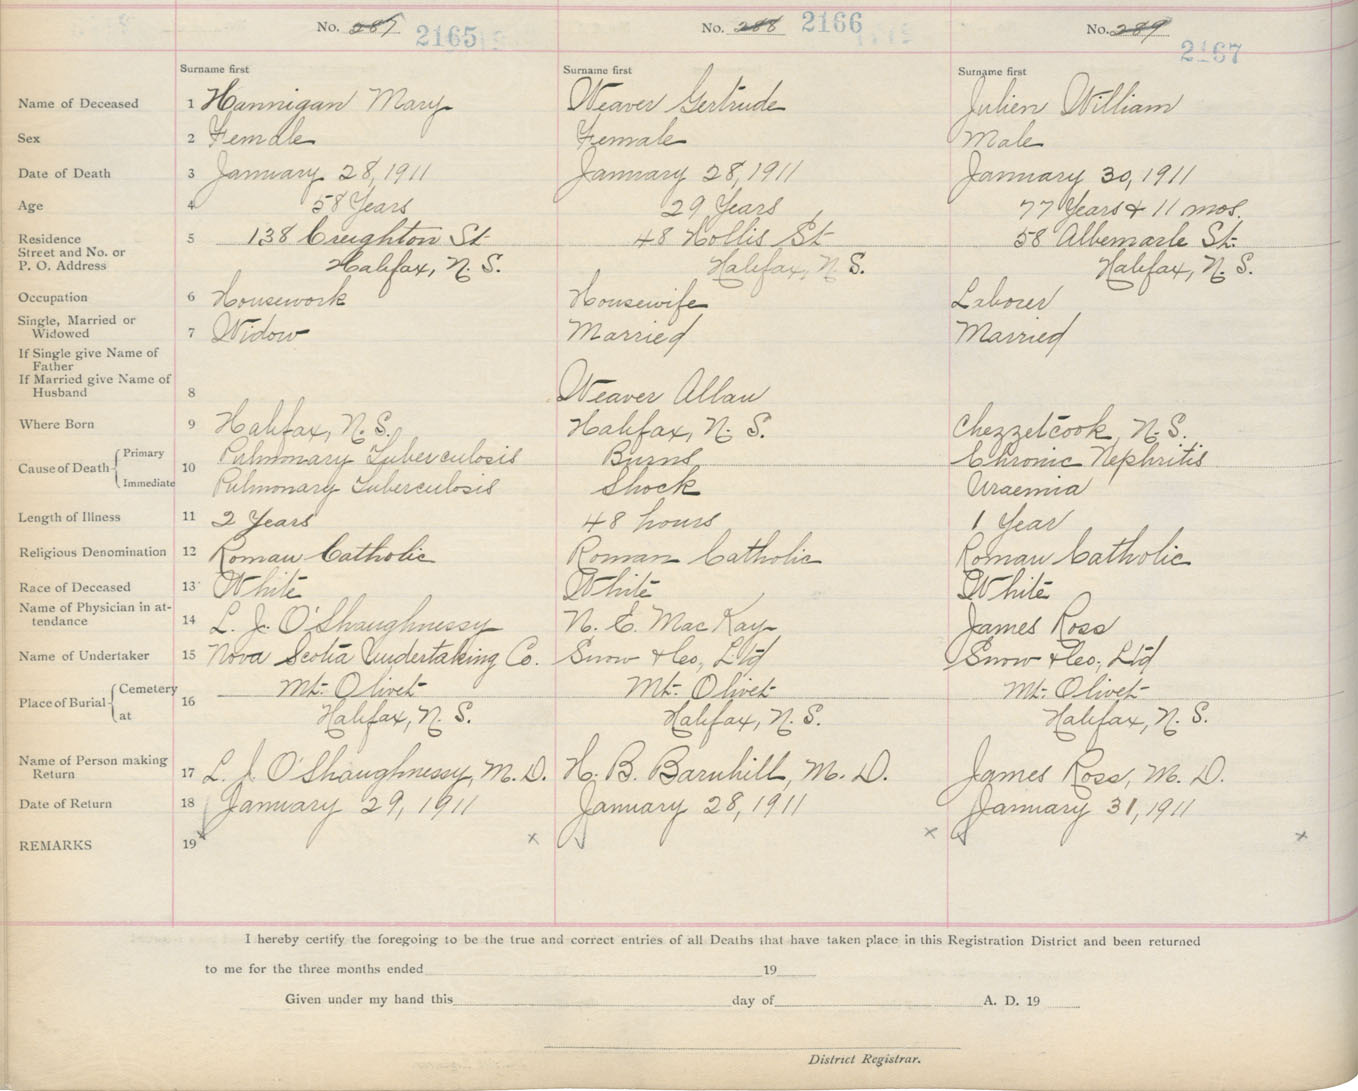 No. 287 2165
No. 288 2166
No. 289 2167
Surname first Surname first Surname first
Name of Deceased 1 Hannigan Mary Weaver Gertrude Julien William
Sex 2 Female Female Male
Date of Death 3 January 28, 1911 January 28, 1911 January 30, 1911
Age 4 58 Years 29 Years 77 Years & 11 mos.
Residence 5 138 Creighton St 48 Hollis St 58 Albemarle St.
Street and No. or
P. O. Address Halifax, N. S. Halifax, N. S. Halifax, N. S.
Occupation 6 Housework Housewife Laborer
Single, Married or
Widowed 7 Widow Married Married
If Single give Name of
Father
If Married give Name of
Husband 8 Weaver Allan
Where Born 9 Halifax, N. S. Halifax, N. S. Chezzetcook, N. S.
Cause of Death Primary 10 Pulmonary Tuberculosis Burns Chronic Nephritis
Immediate Pulmonary Tuberculosis Shock Uraemia
Length of Illness 11 2 Years 48 hours 1 Year
Religious Denomination 12 Roman Catholic Roman Catholic Roman Catholic
Race of Deceased 13 White White White
Name of Physician in at-
tendance 14 L. J. O'Shaughnessy N. E. MacKay James Ross
Name of Undertaker 15 Nova Scotia Undertaking Co. Snow & Co, Ltd Snow & Co, Ltd
Place of Burial Cemetery 16 Mt. Olivet Mt. Olivet Mt. Olivet
at Halifax, N. S. Halifax, N. S. Halifax, N. S.
Name of Person making
Return 17 L. J. O'Shaughnessy, M. D. H. B. Barnhill, M. D. James Ross, M. D.
Date of Return 18 January 29, 1911 January 28, 1911 January 31, 1911
REMARKS 19 x x x x
I hereby certify the foregoing to be the true and correct entries of all Deaths that have taken place in this Registration District and been returned
to me for the three months ended 19
Given under my hand this day of A. D. 19
District Registrar.